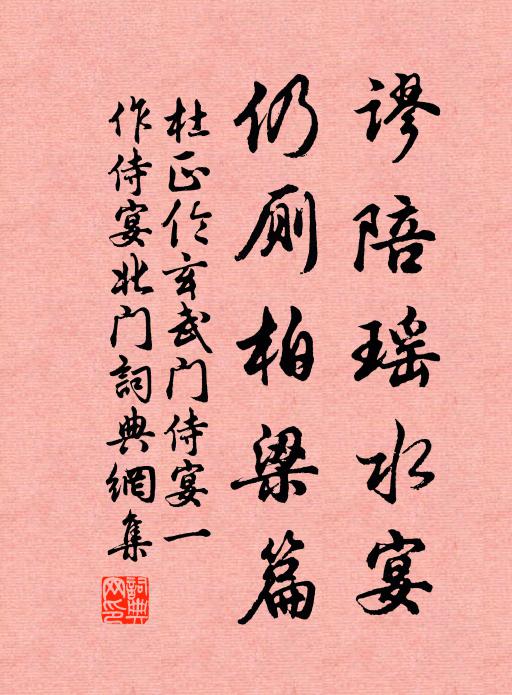 谬陪瑶水宴
仍厕柏梁篇
杜正伦玄武门侍宴一
作侍宴北门詞典網集
詞典网印